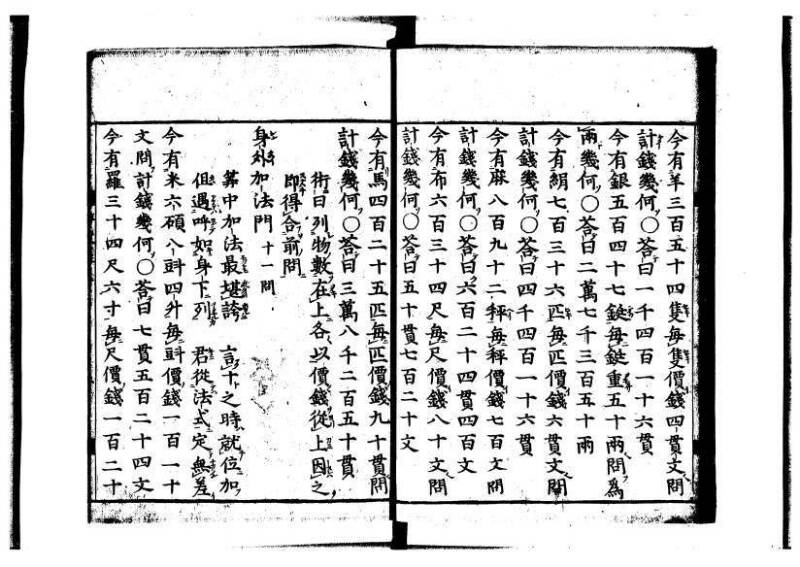 今有羊三百五十四隻每隻價錢四貫文問
計錢幾何○荅曰一千四百一十六貫
今有銀五百四十七錠每錠重五十兩問爲
兩幾何○荅曰二萬七千三百五十兩
今有絹七百三十六匹每匹價錢六貫文問
計錢幾何○荅曰四千四百一十六貫
今有麻八百九十二秤每秤價錢七百文問
計錢幾何○荅曰六百二十四貫四百文
今有布六百三十四尺每尺價錢八十文問
計錢幾何○荅曰五十貫七百二十文
今有馬四百二十五匹每匹價錢九十貫問
計錢幾何○荅曰三萬八千二百五十貫
術曰列物數在上各以價錢從上因之
即得合前問
身外加法門 十一問
筭中加法最堪誇 言十之時就位加
但遇呼如身下列 君從法式定無差
今有米六碩八㪷四升每㪷價錢一百一十
文問計錢幾何○荅曰七貫五百二十四文
今有羅三十四尺六寸每尺價錢一百二十